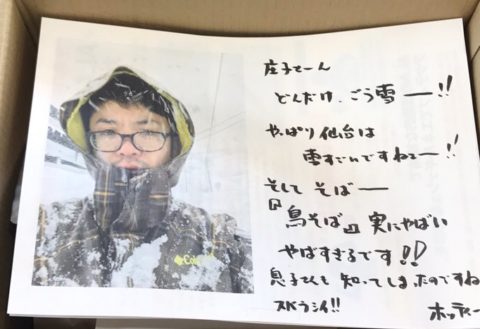 庄子さーん
どんだけ、ごう雪ー!!
やっぱり仙台は
雪すごいですねぇー!!
そして そばー
『鳥そば』実にやばい
やばすぎるです!!
息子さんも 知ってしまったのですね
スバラシイ!!
ホッティー
Col